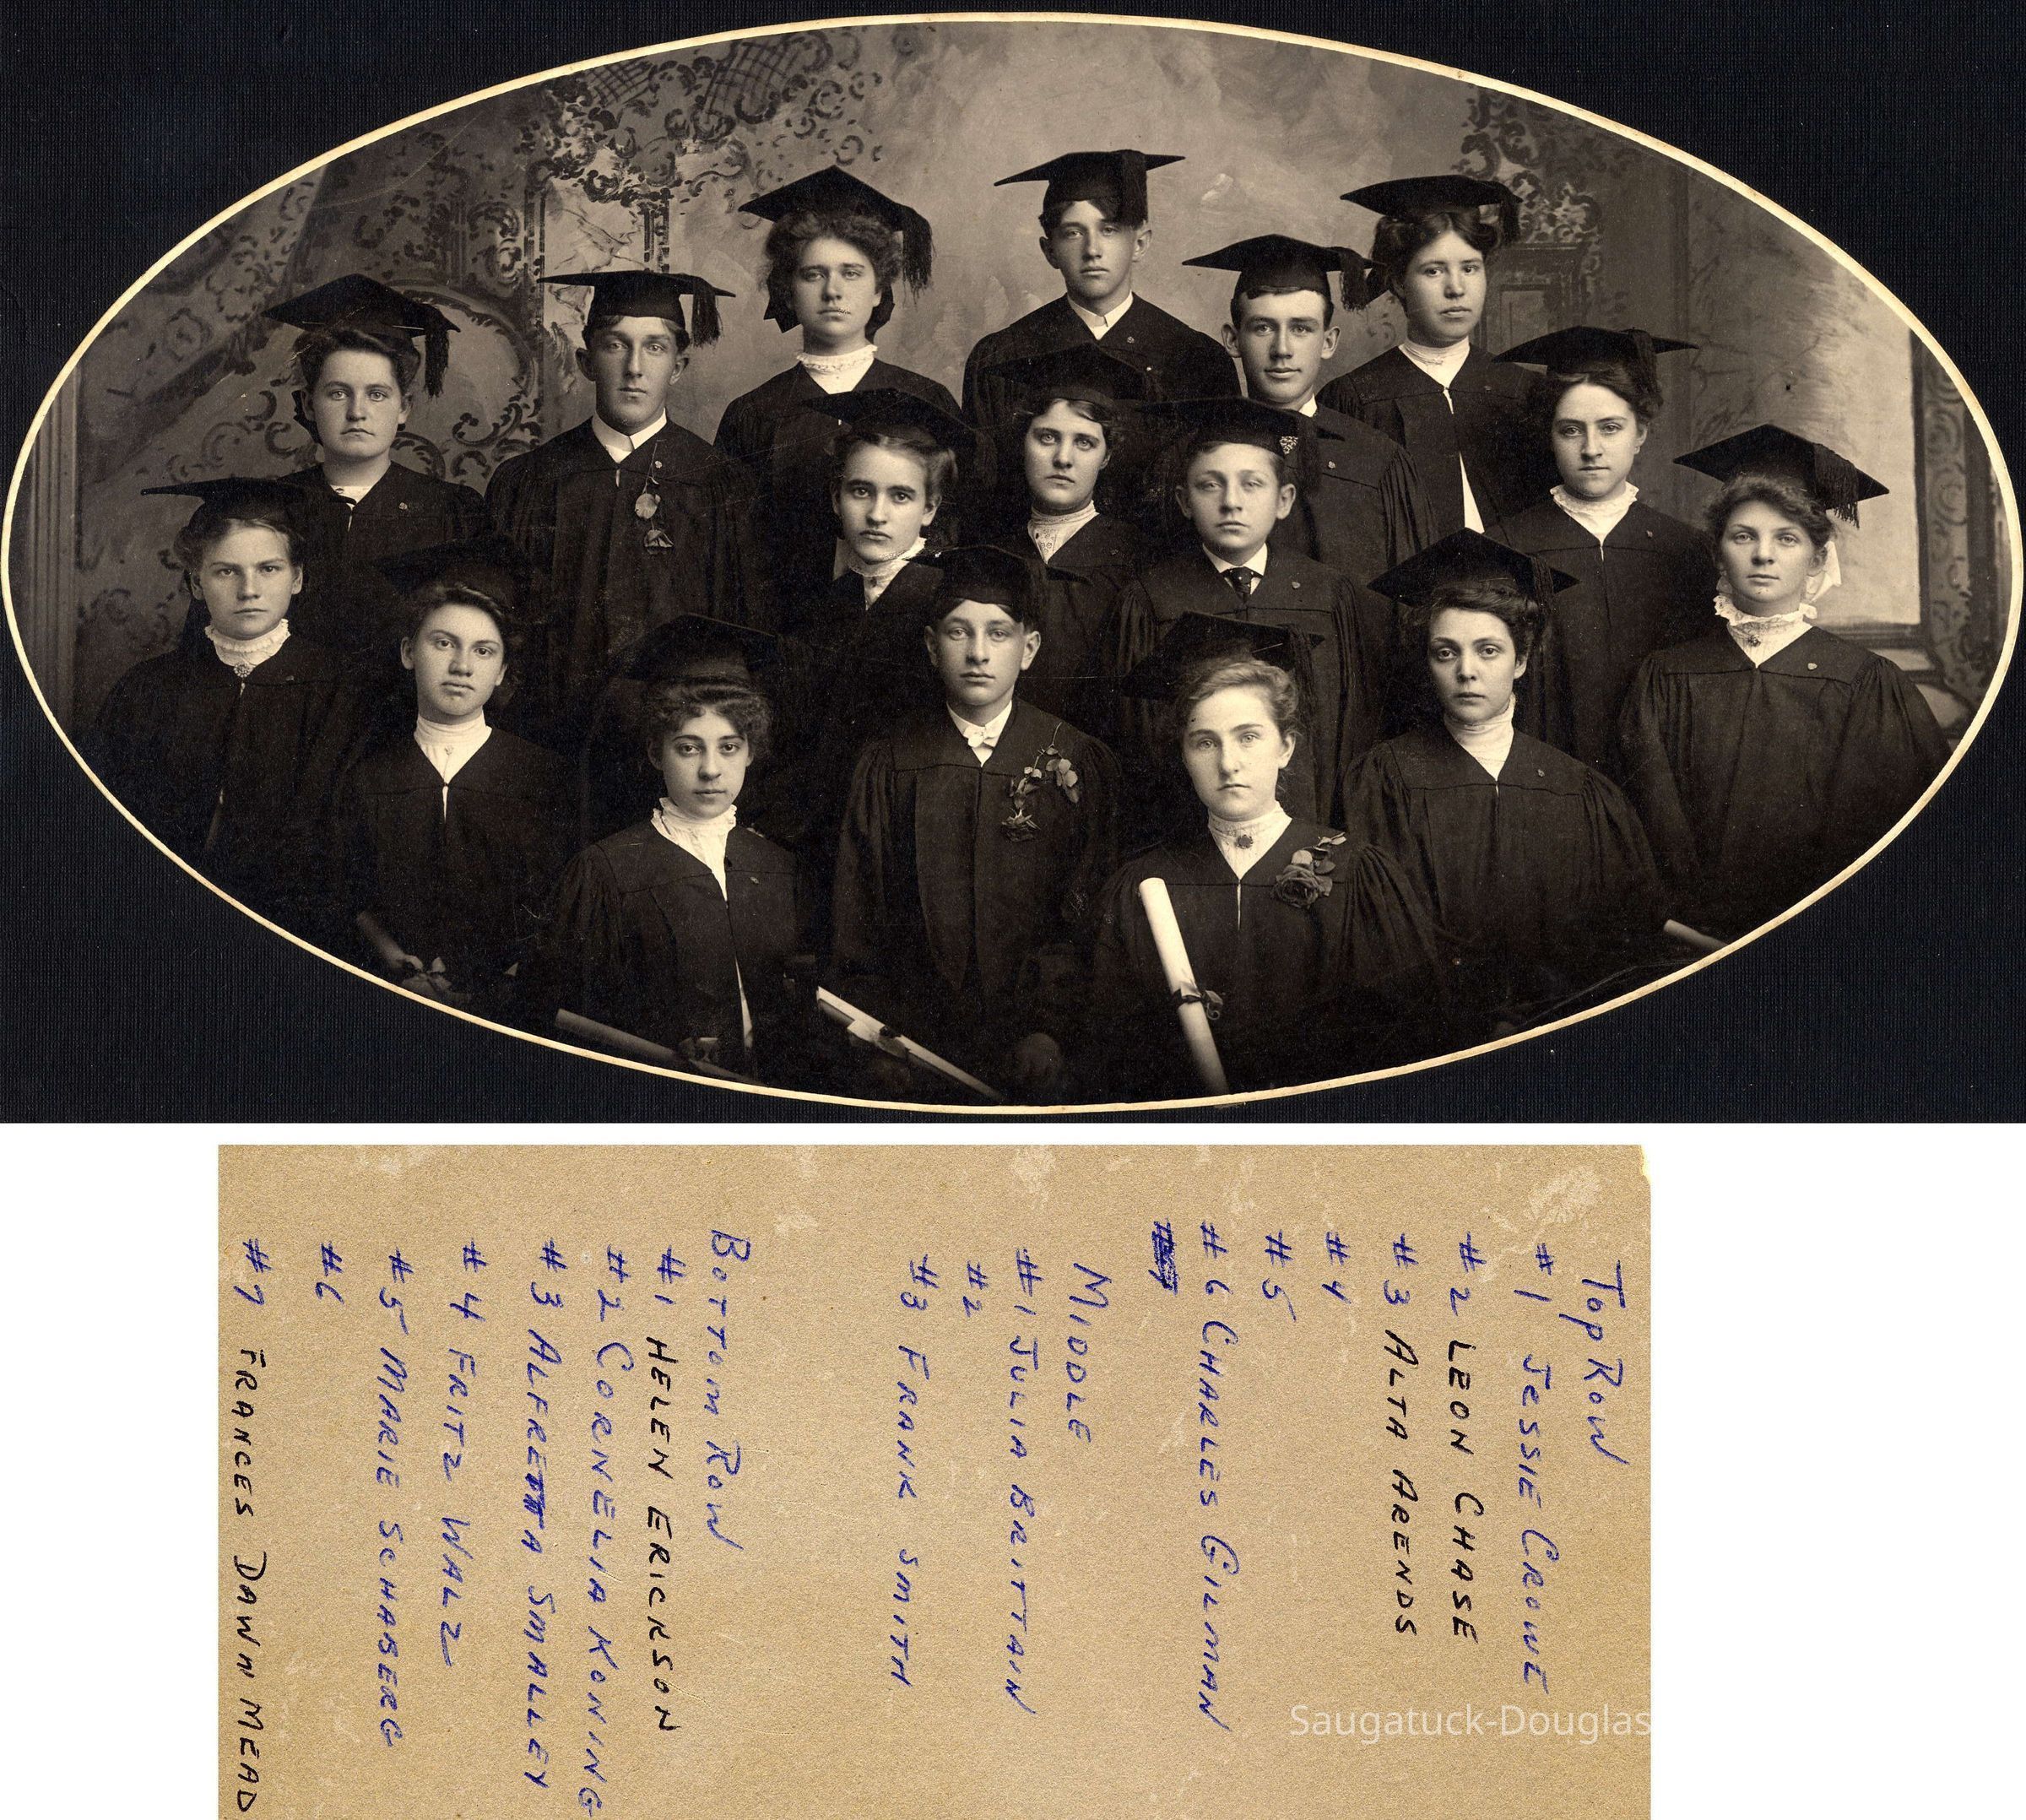 Top Row
#1 Jessie Crowe
#2 LEON CHASE
#3 ALTA ARENDS
#4
#5
#6 CHARLES GILMAN
MIDDLE
#1 JULIA BRITTAIN
#2
#3 FRANK SMITH
BOTTOM ROW
#1 HELEN ERICKSON
#2 CORNELIA KONING
#3 ALFRETTA SMALLEY
#4 FRITZ WALZ
#5 MARIE SCHABERG
#6
#7 FRANCES DAWN MEAD
Saugatuck-Douglas